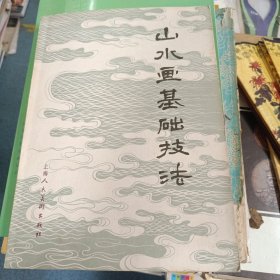 山水画基础技法
上海人民美术出版社